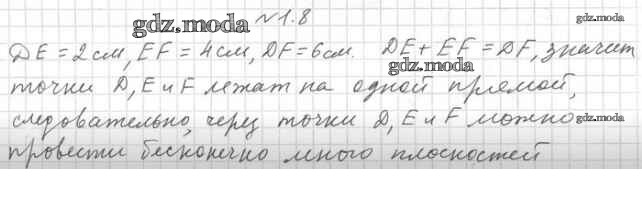 gdz.moda №1.8 gdz.moda
DE = 2 см, EF = 4 см, DF = 6 см. DE + EF = DF, значит
gdz.moda
точки D, E и F лежат на одной прямой,
следовательно, через точки D, E и F можно gdz.moda
провести бесконечно много плоскостей